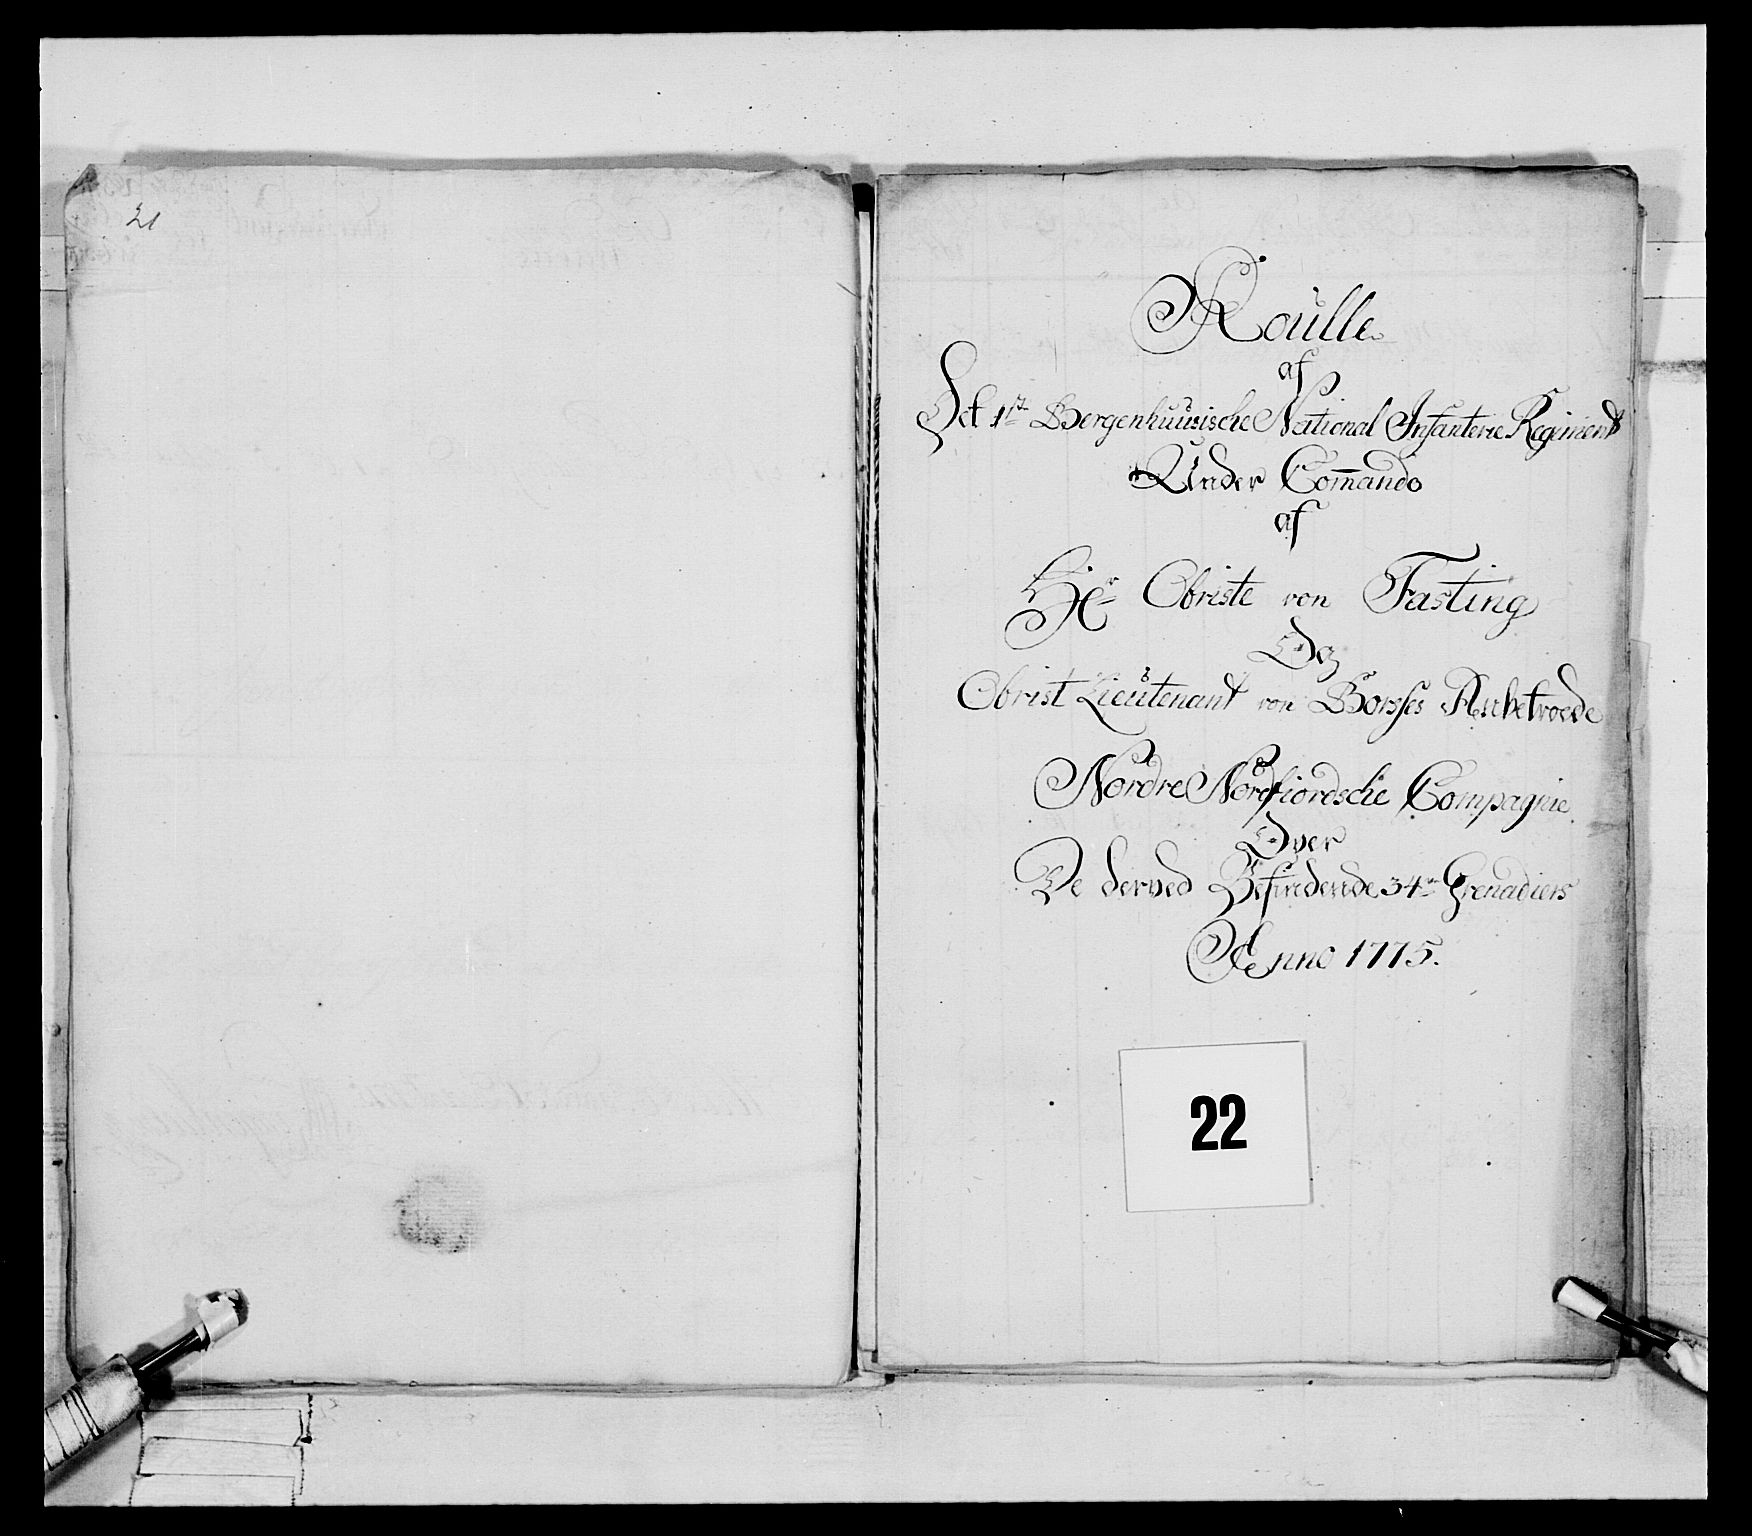 21
Roülle
af
Det 1ste Bergenhuusische National Infanterie Regiment
Under Com̅ando
af
Hr Obriste von Fasting
Og
Obrist Lieütenant von Borsses Anbetroede
Nordre Nordfiordsche Compagnie
Over
De derved Befindende 34re Grenadiers
Anno 1775.
22